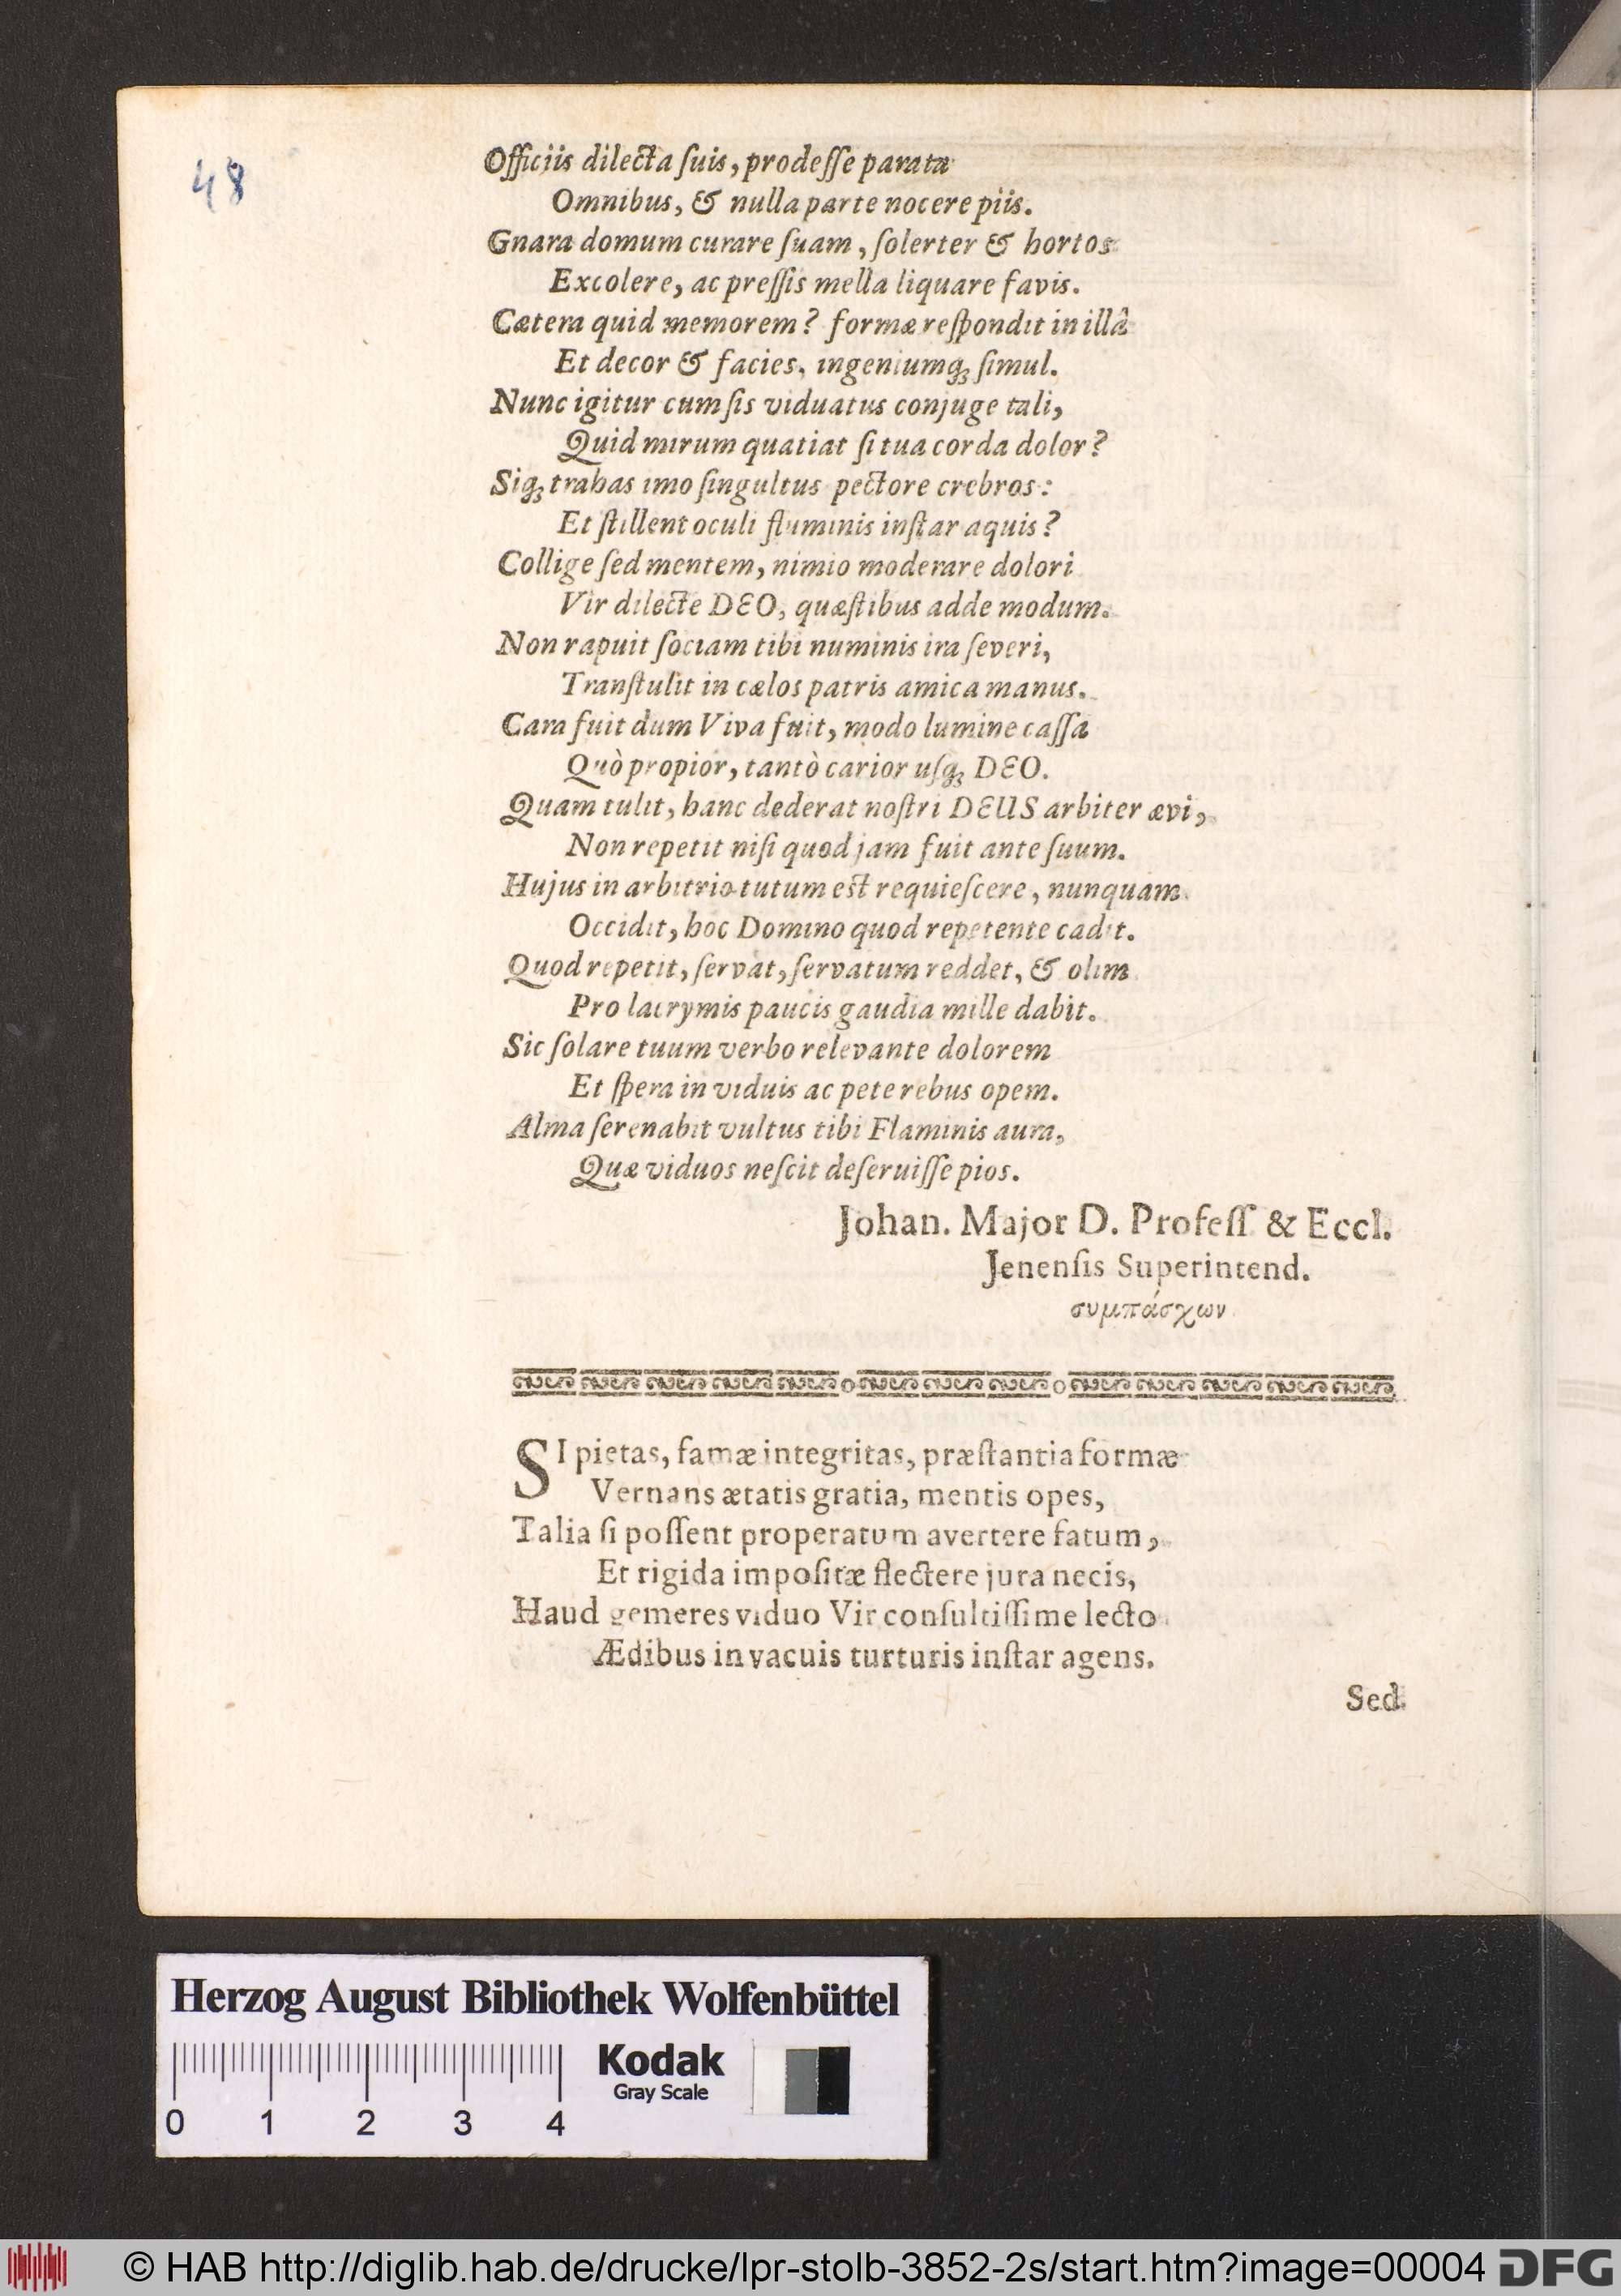 48
Officiis dilecta ſuis, prodeſſe parata
Omnibus, & nulla parte nocere piis.
Gnara domum curare ſuam, ſolerter & hortos
Excolere, ac preſſis mella liquare favis.
Cætera quid memorem? formæ reſpondit in illâ
Et decor & facies, ingeniumq́; ſimul.
Nunc igitur cum ſis viduatus conjuge tali,
Quid mirum quatiat ſi tua corda dolor?
Siq́; trahas imo ſingultus pectore crebros:
Et ſtillent oculi fluminis inſtar aquis?
Collige ſed mentem, nimio moderare dolori
Vir dilecte DEO, quæſtibus adde modum.
Non rapuit ſociam tibi numinis ira ſeveri,
Tranſtulit in cælos patris amica manus.
Cara fuit dum Viva fuit, modo lumine caſſa
Quò propior, tantò carior uſq́; DEO.
Quam tulit, hanc dederat noſtri DEUS arbiter ævi,
Non repetit niſi quod jam fuit ante ſuum.
Hujus in arbitrio tutum est requieſcere, nunquam
Occidit, hoc Domino quod repetente cadit.
Quod repetit, ſervat, ſervatum reddet, & olim
Pro lacrymis paucis gaudia mille dabit.
Sic ſolare tuum verbo relevante dolorem
Et ſpera in viduis ac pete rebus opem.
Alma ſerenabit vultus tibi Flaminis aura,
Quæ viduos neſcit deſeruiſſe pios.
Johan. Major D. Profeſſ. & Eccl.
Jenenſis Superintend.
συμπάσχων
SI pietas, famæ integritas, præſtantia formæ
Vernans ætatis gratia, mentis opes,
Talia ſi poſſent properatum avertere fatum,
Et rigida impoſitæ flectere jura necis,
Haud gemeres viduo Vir conſultiſſime lecto
Ædibus in vacuis turturis inſtar agens.
Sed
Herzog August Bibliothek Wolfenbüttel
Kodak
Gray Scale
0 1 2 3 4
© HAB http://diglib.hab.de/drucke/lpr-stolb-3852-2s/start.htm?image=00004
DFG